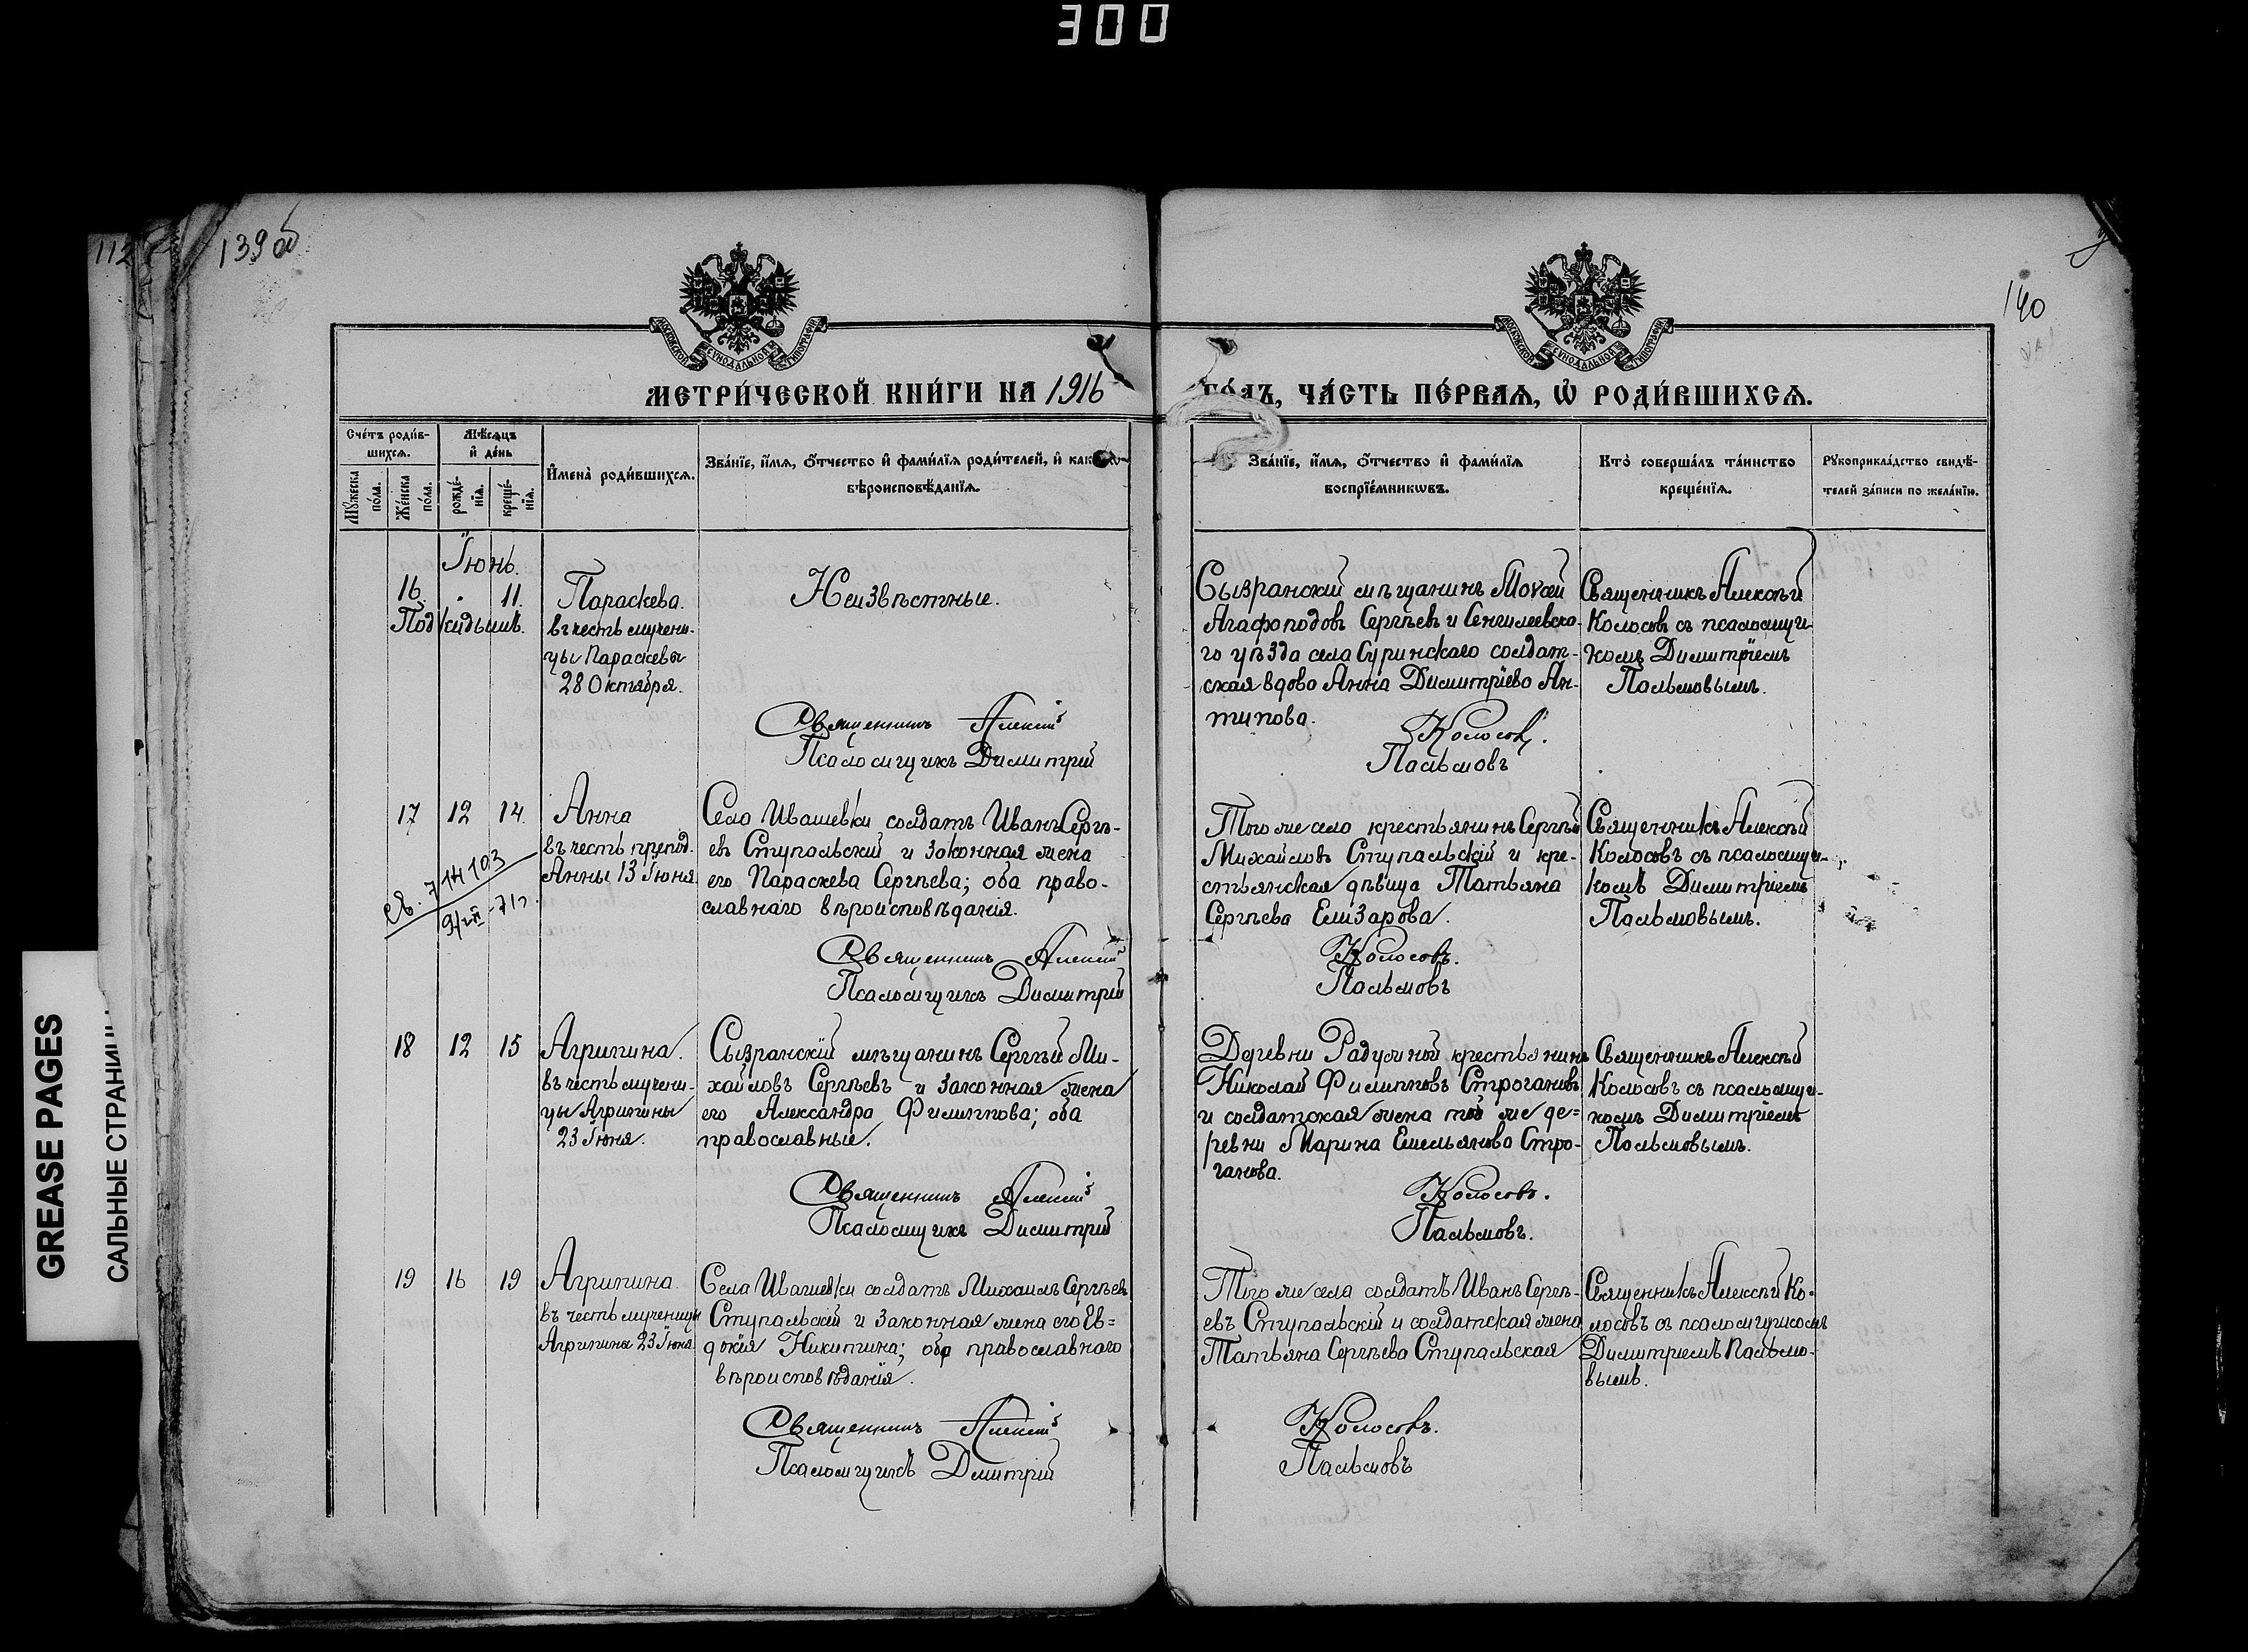 300
112
139 об
140
МОСКОВСКОЙ СѴНОДАЛЬНОЙ ТИПОГРАФІИ
МОСКОВСКОЙ СѴНОДАЛЬНОЙ ТИПОГРАФІИ
МЕТРИ́ЧЕСКОЙ КНИ́ГИ НА 1916
ГО́ДЪ, ЧА́СТЬ ПЕ́РВАѦ, Ѿ РОДИ́ВШИХСѦ.
Сче́тъ роди́в-
шихсѧ.
Мꙋ́жеска по́ла.
Же́нска по́ла.
Мѣ́сѧцъ
и҆ де́нь
рожде́-
нїѧ.
креще́-
нїѧ.
И҆мена̀ роди́вшихсѧ.
Зва́нїе, и҆́мѧ, ѻ҆́тчество и҆ фами́лїѧ роди́телей, и҆
вѣроисповѣ́данїѧ.
Зва́нїе, и҆́мѧ, ѻ҆́тчество и҆ фами́лїѧ
воспрїе́мниковъ.
Кто̀ соверша́лъ та́инство
креще́нїѧ.
Рꙋкоприкла́дство свидѣ́-
телей за́писи по жела́нїю.
Іюнь.
16. . 11.
Подкидышъ.
Параскева.
въ честь мучени-
цы Параскевы
28 Октября.
Неизвѣстные.
Священникъ Алексій
Псаломщикъ Димитрій
Сызранскій мѣщанинъ Моѵсей
Агафоподовъ Сергѣевъ и Сенгилеевска-
го уѣзда села Суринскаго солдат-
ская вдова Анна Димитріева Ан-
типова.
Колосовъ.
Пальмовъ
Священникъ Алексѣй
Колосовъ съ псаломщи-
комъ Димитріемъ
Пальмовымъ.
17 12 14.
Св. 714103
Анна
въ честь препод.
Анны 13 Іюня
Село Ивашевки солдатъ Иванъ Сергѣ-
евъ Ступальскій и законная жена
его Параскева Сергѣева; оба право-
славнаго вѣроисповѣданія.
Священникъ Алексій
Псаломщикъ Димитрій
Того же села крестьянинъ Сергѣй
Михайловъ Ступальскій и кре-
стьянская дѣвица Татьяна
Сергѣева Елизарова.
Колосовъ.
Пальмовъ
Священникъ Алексѣй
Колосовъ съ псаломщи-
комъ Димитріемъ
Пальмовымъ.
18 12 15
Агрипина.
въ честь мучени-
цы Агрипины
23 Іюня.
Сызранскій мѣщанинъ Сергѣй Ми-
хайловъ Сергѣевъ и законная жена
его Александра Филиппова; оба
православные.
Священникъ Алексій
Псаломщикъ Димитрій
Деревни Радусиной крестьянинъ
Николай Филипповъ Строгановъ
и солдатская жена той же де=
ревни Марина Емельянова Стро-
ганова.
Колосовъ.
Пальмовъ.
Священникъ Алексѣй
Колосовъ съ псаломщи-
комъ Димитріемъ
Пальмовымъ.
19 16 19
Агрипина
въ честь мученицы
Агрипины 23 Іюня.
Села Ивашевки солдатъ Михаилъ Сергѣевъ
Ступальскій и законная жена его Ев=
докія Никитина; оба православнаго
вѣроисповѣданія.
Священникъ Алексій
Псаломщикъ Дмитрій
Того же села солдатъ Иванъ Сергѣ-
евъ Ступальскій и солдатская жена
Татьяна Сергѣева Ступальская
Колосовъ.
Пальмовъ
Священникъ Алексѣй Ко-
лосовъ съ псаломщикомъ
Димитріемъ Пальмо-
вымъ.
GREASE PAGES
САЛЬНЫЕ СТРАНИЦЫ